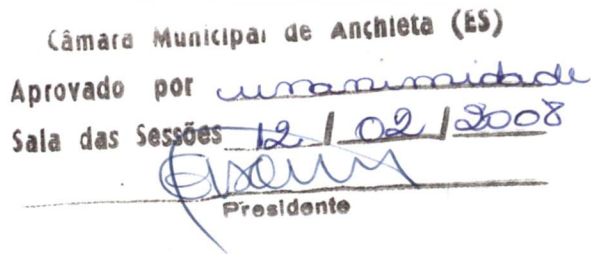 Câmara Municipal de Anchieta (ES)
Aprovado por unanimidade
Sala das Sessões 12 / 02 / 2008
Presidente